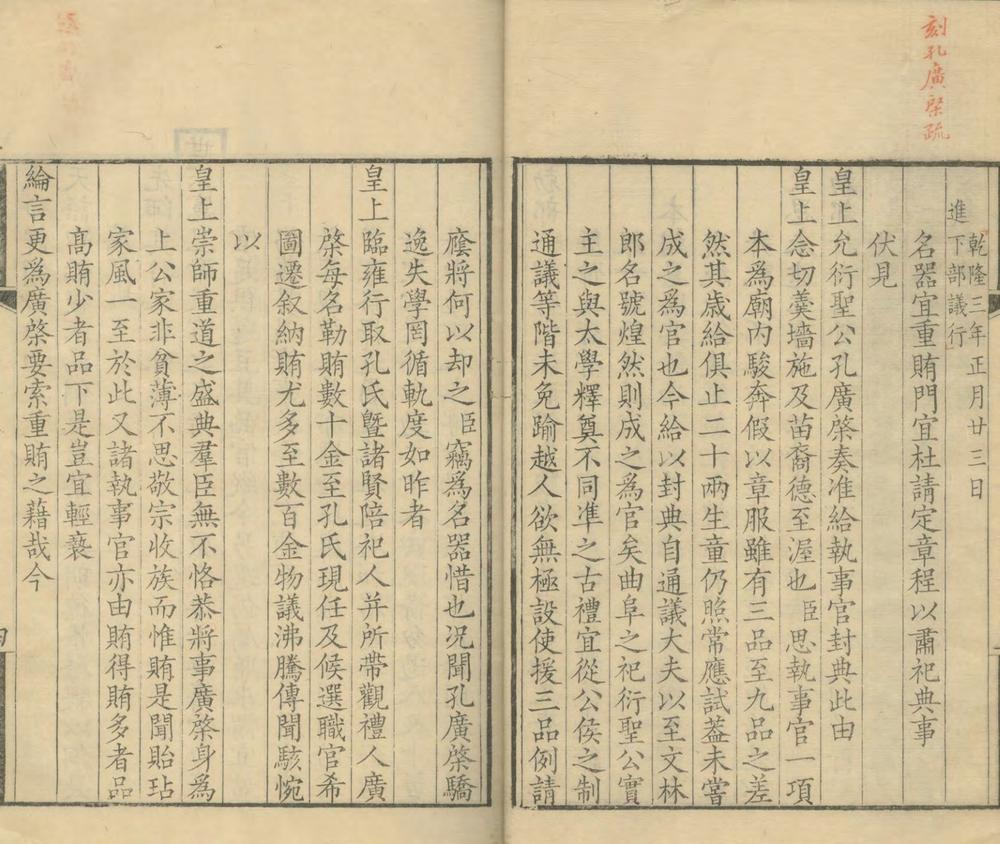 刻孔廣棨疏
乾隆三年正月廿三日
進下部議行
名器宜重賄門宜杜請定章程以肅祀典事
伏見
皇上允衍聖公孔廣棨奏准給執事官封典此由
皇上念切羹墻施及苗裔德至渥也臣思執事官一項
本為廟內駿奔假以章服雖有三品至九品之差
然其歲給俱止二十兩生童仍照常應試葢未嘗
成之為官也今給以封典自通議大夫以至文林
郎名號煌然則成之為官矣曲阜之祀衍聖公實
主之與太學釋奠不同準之古禮宜從公侯之制
通議等階未免踰越人欲無極設使援三品例請
廕將何以却之臣竊為名器惜也況聞孔廣棨驕
逸失學罔循軌度如昨者
皇上臨雍行取孔氏暨諸賢陪祀人并所帶觀禮人廣
棨每名勒賄數十金至孔氏現任及候選職官希
圖遷叙納賄尤多至數百金物議沸騰傳聞駭惋
以
皇上崇師重道之盛典羣臣無不恪恭將事廣棨身為
上公家非貧薄不思敬宗收族而惟賄是聞貽玷
家風一至於此又諸執事官亦由賄得賄多者品
髙賄少者品下是豈宜輕䙝
綸言更為廣棨要索重賄之藉哉今